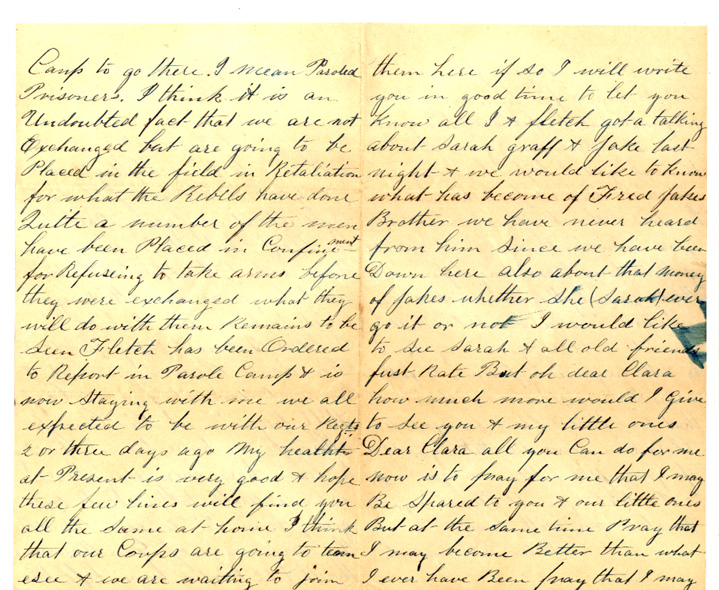 Camp to go there. I mean Paroled
Prisoners. I think it is an
Undoubted fact that we are not
Exchanged but are going to be
Placed in the field in Retaliation
for what the Rebels have done
Quite a number of the men
have been Placed in Confinement
for Refusing to take arms before
they were exchanged what they
will do with them Remains to be
Seen Fletch has been Ordered
to Report in Parole Camp & is
now Staying with me we all
expected to be with our Regts
2 or three days ago My health
at Present is very good & hope
these few lines will find you
all the Same at home I think
that our Corps are going to tenn
esee & we are waiting to join
them here if so I will write
you in good time to let you
Know all I & fletch got a talking
about Sarah graff & Jake last
night & we would like to know
what has become of Fred Jakes
Brother we have never heard
from him Since we have been
Down here also about that money
of Jakes whether She (Sarah) ever
go it or not I would like
to See Sarah & all old friends
Just Rate But oh dear Clara
how much more would I Give
to see you & my little ones
Dear Clara all you Can do for me
now is to pray for me that I may
Be Spared to you & our little ones
But at the Same time Pray that
I may become Better than what
I ever have Been pray that I may